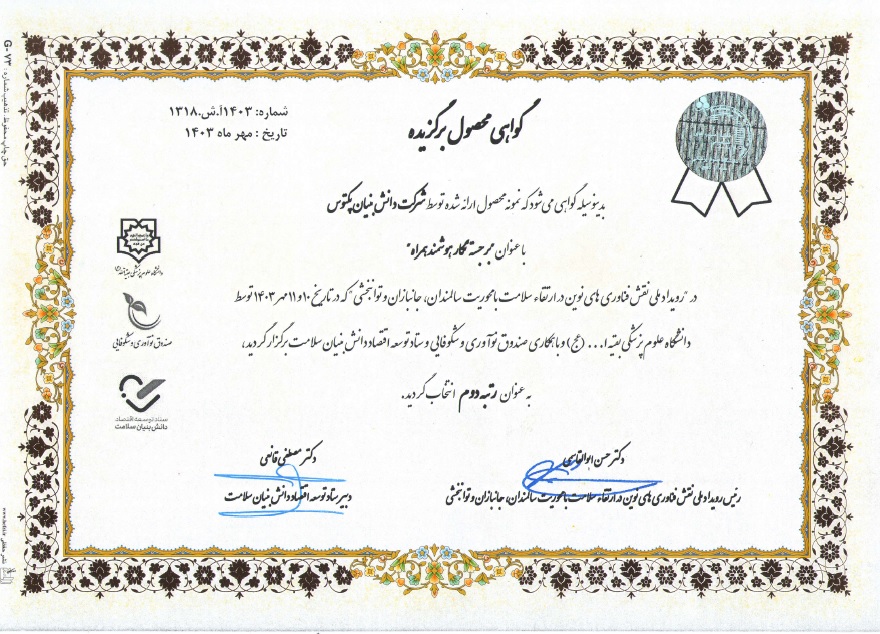 شماره: ۱۴۰۳آ.ش.۱۳۱۸
تاریخ : مهر ماه ۱۴۰۳
گواهی محصول برگزیده
بدینوسیله گواهی می شود که نمونه محصول ارائه شده توسط شرکت دانش بنیان پکتوس
با عنوان "برجسته نگار هوشمند همراه"
در "رویداد ملی نقش فناوری های نوین در ارتقاء سلامت با محوریت سالمندان، جانبازان و توانبخشی" که در تاریخ ۱۰ و ۱۱ مهر ۱۴۰۳ توسط
دانشگاه علوم پزشکی بقیه ا... (عج) و با همکاری صندوق نوآوری و شکوفایی و ستاد توسعه اقتصاد دانش بنیان سلامت برگزار گردید،
به عنوان رتبه دوم انتخاب گردید.
دانشگاه علوم پزشکی بقیة الله (عج)
صندوق نوآوری و شکوفایی
ستاد توسعه اقتصاد
دانش بنیان سلامت
دکتر حسن ابوالقاسمی
رئیس رویداد ملی نقش فناوری های نوین در ارتقاء سلامت با محوریت سالمندان، جانبازان و توانبخشی
دکتر مصطفی قانعی
دبیر ستاد توسعه اقتصاد دانش بنیان سلامت
حق چاپ محفوظ. تذهیب شماره : G-۷۳